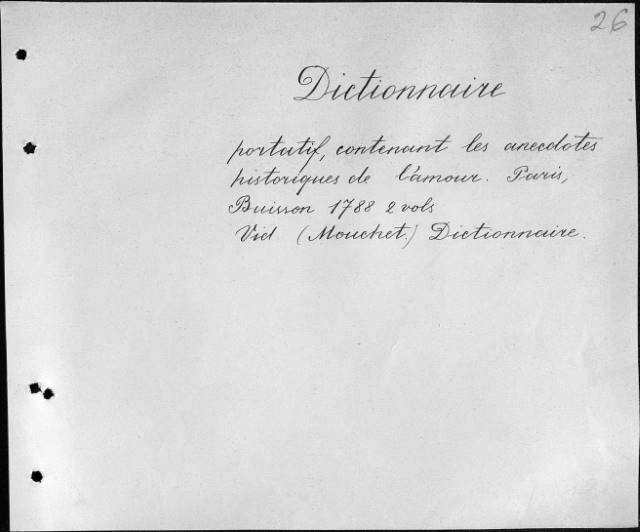 26
Dictionnaire
portatif, contenant les anecdotes
historiques de l'amour. Paris,
Buisson 1788 2 vols
Vid (Mouchet.) Dictionnaire.